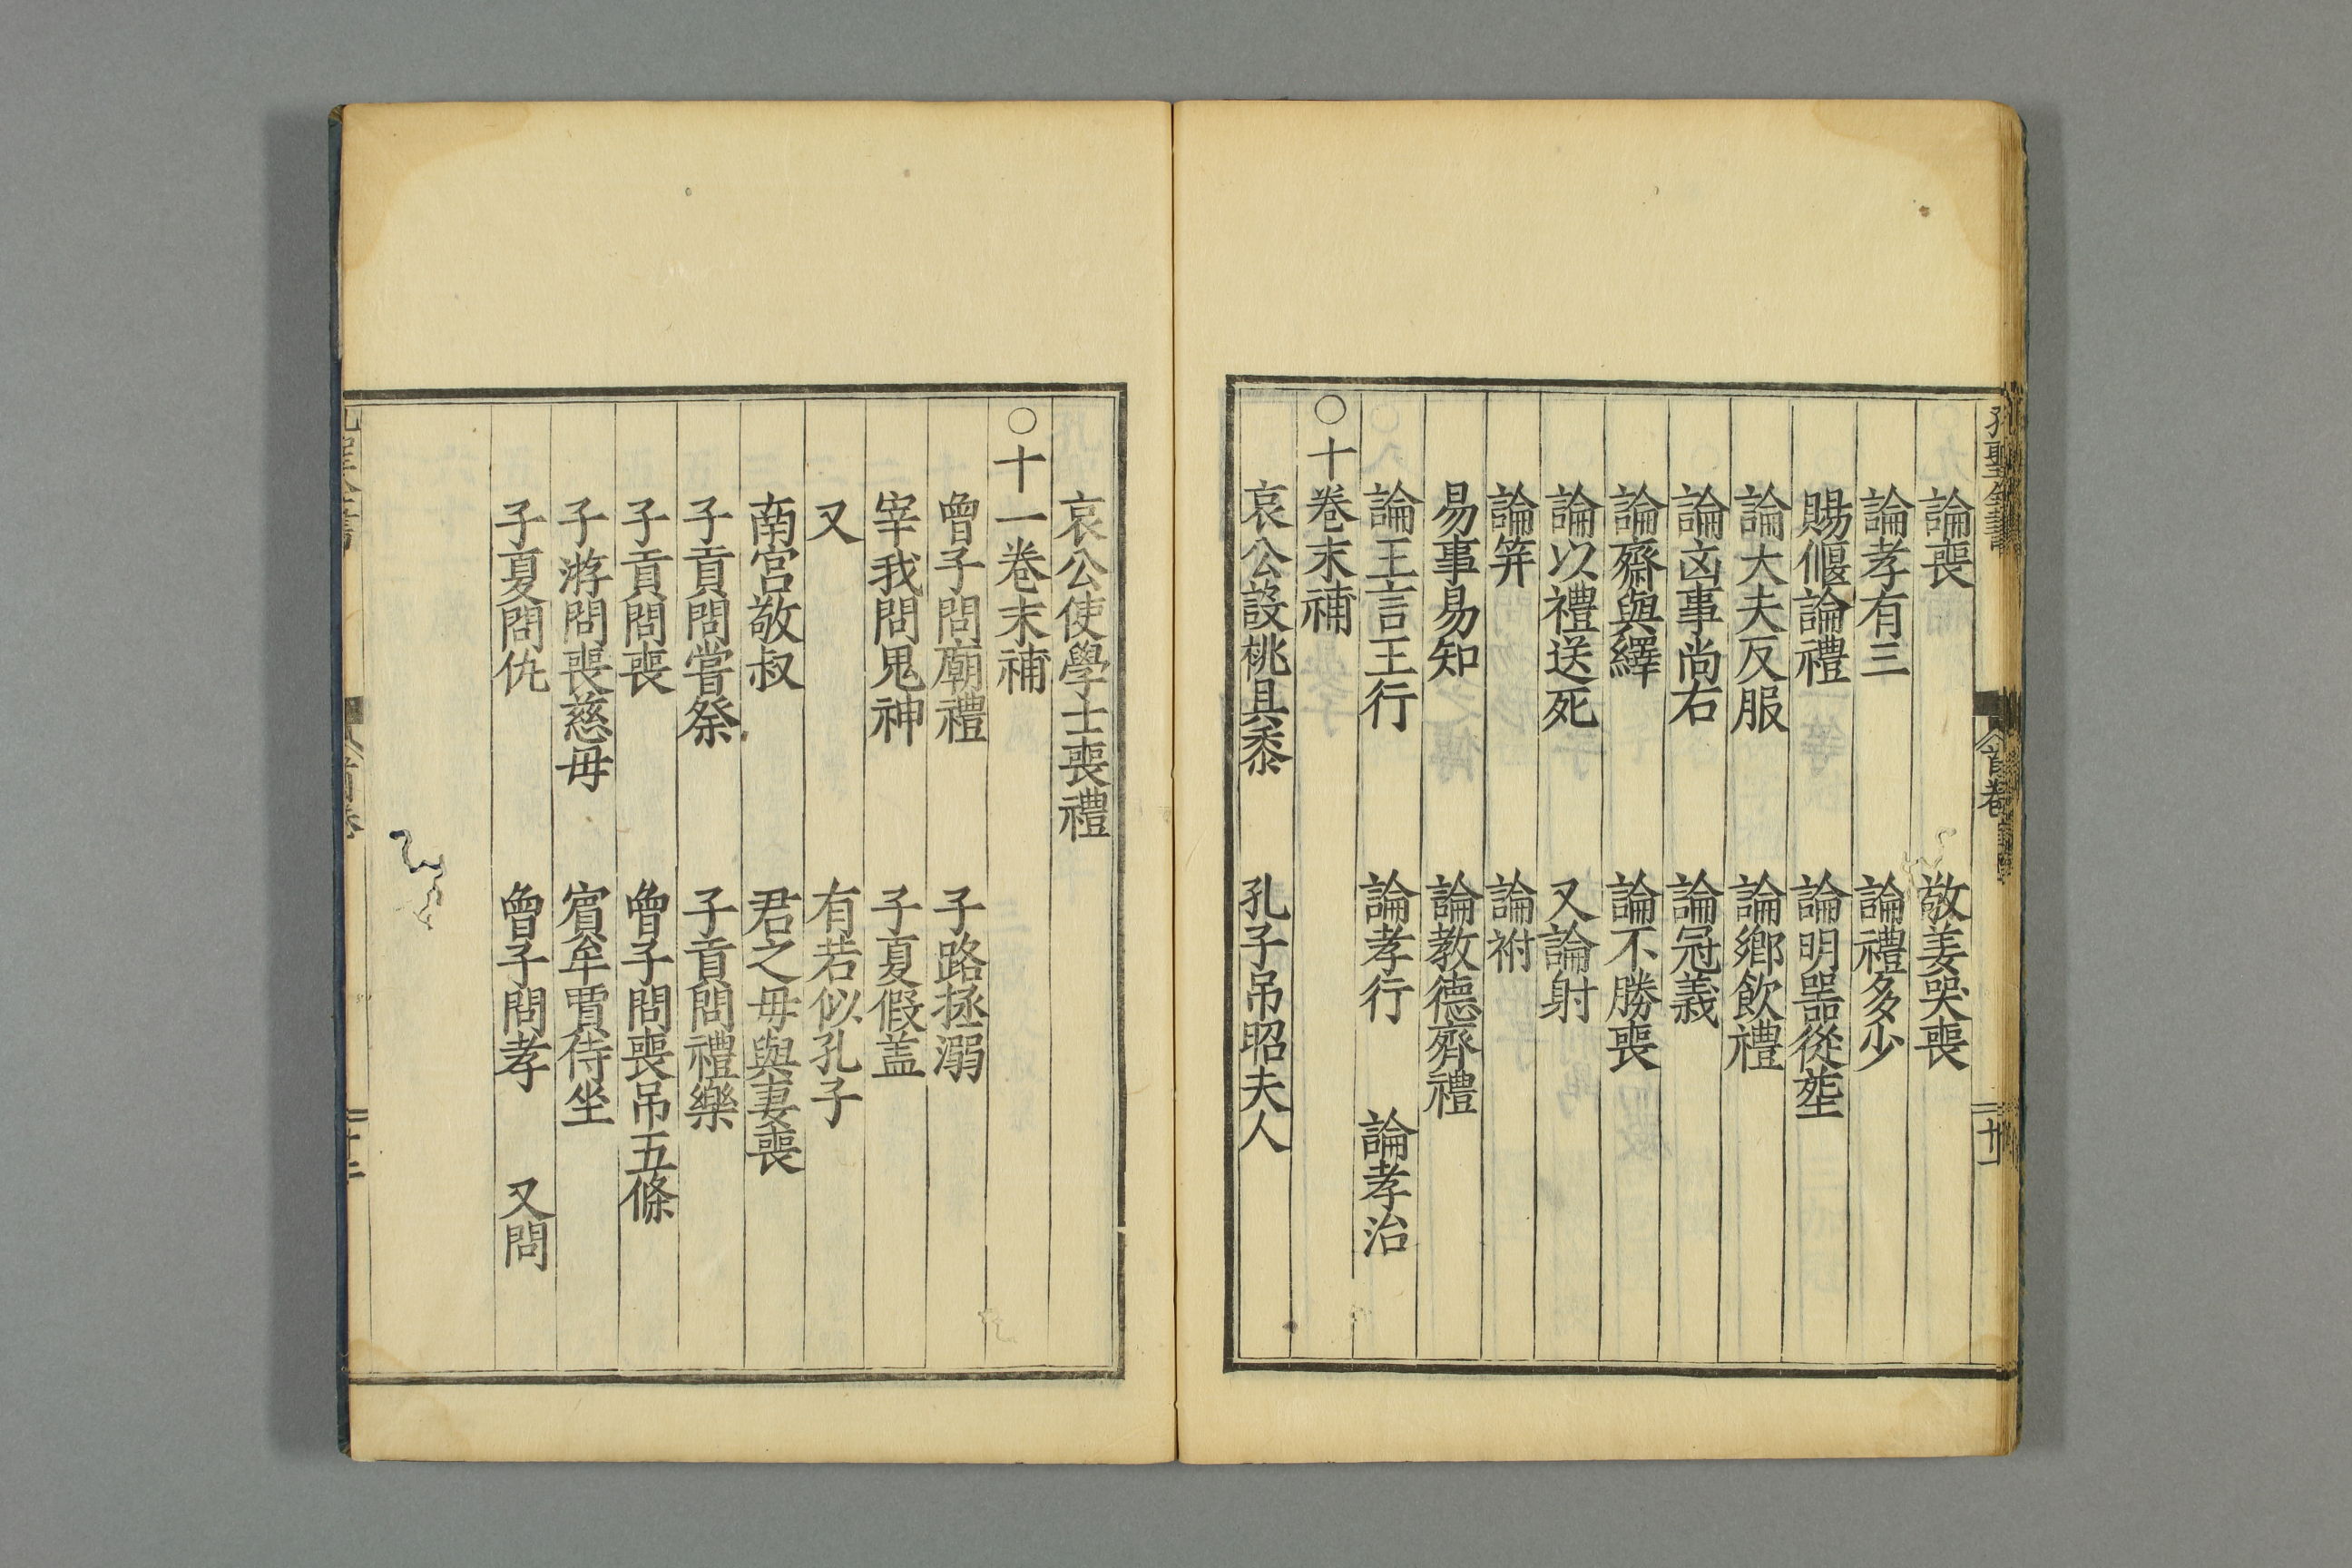 孔聖全書 首卷 廿一
論喪 敬姜哭喪
論孝有三 論禮多少
賜偃論禮 論明器從塟
論大夫反服 論鄉飲禮
論凶事尚右 論冠義
論齋與繹 論不勝喪
論以禮送死 又論射
論筓 論祔
易事易知 論教德齊禮
論王言王行 論孝行 論孝治
○十卷末補
哀公設桃具黍 孔子吊昭夫人
哀公使學士喪禮
○十一卷末補
曾子問廟禮 子路拯溺
宰我問鬼神 子夏假盖
又 有若似孔子
南宮敬叔 君之母與妻喪
子貢問嘗祭 子貢問禮樂
子貢問喪 曾子問喪吊五條
子游問喪慈母 賓牟賈侍坐
子夏問仇 曾子問孝 又問